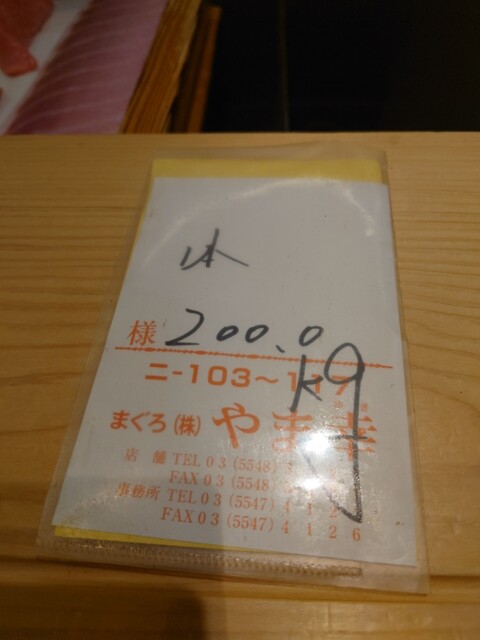 様 200.0
kg
ニ-103〜117
まぐろ(株)やま幸
店 舗 TEL 03 (5548)
FAX 03 (5548)
事務所 TEL 03 (5547) 4 1 2
FAX 03 (5547) 4 1 2 6